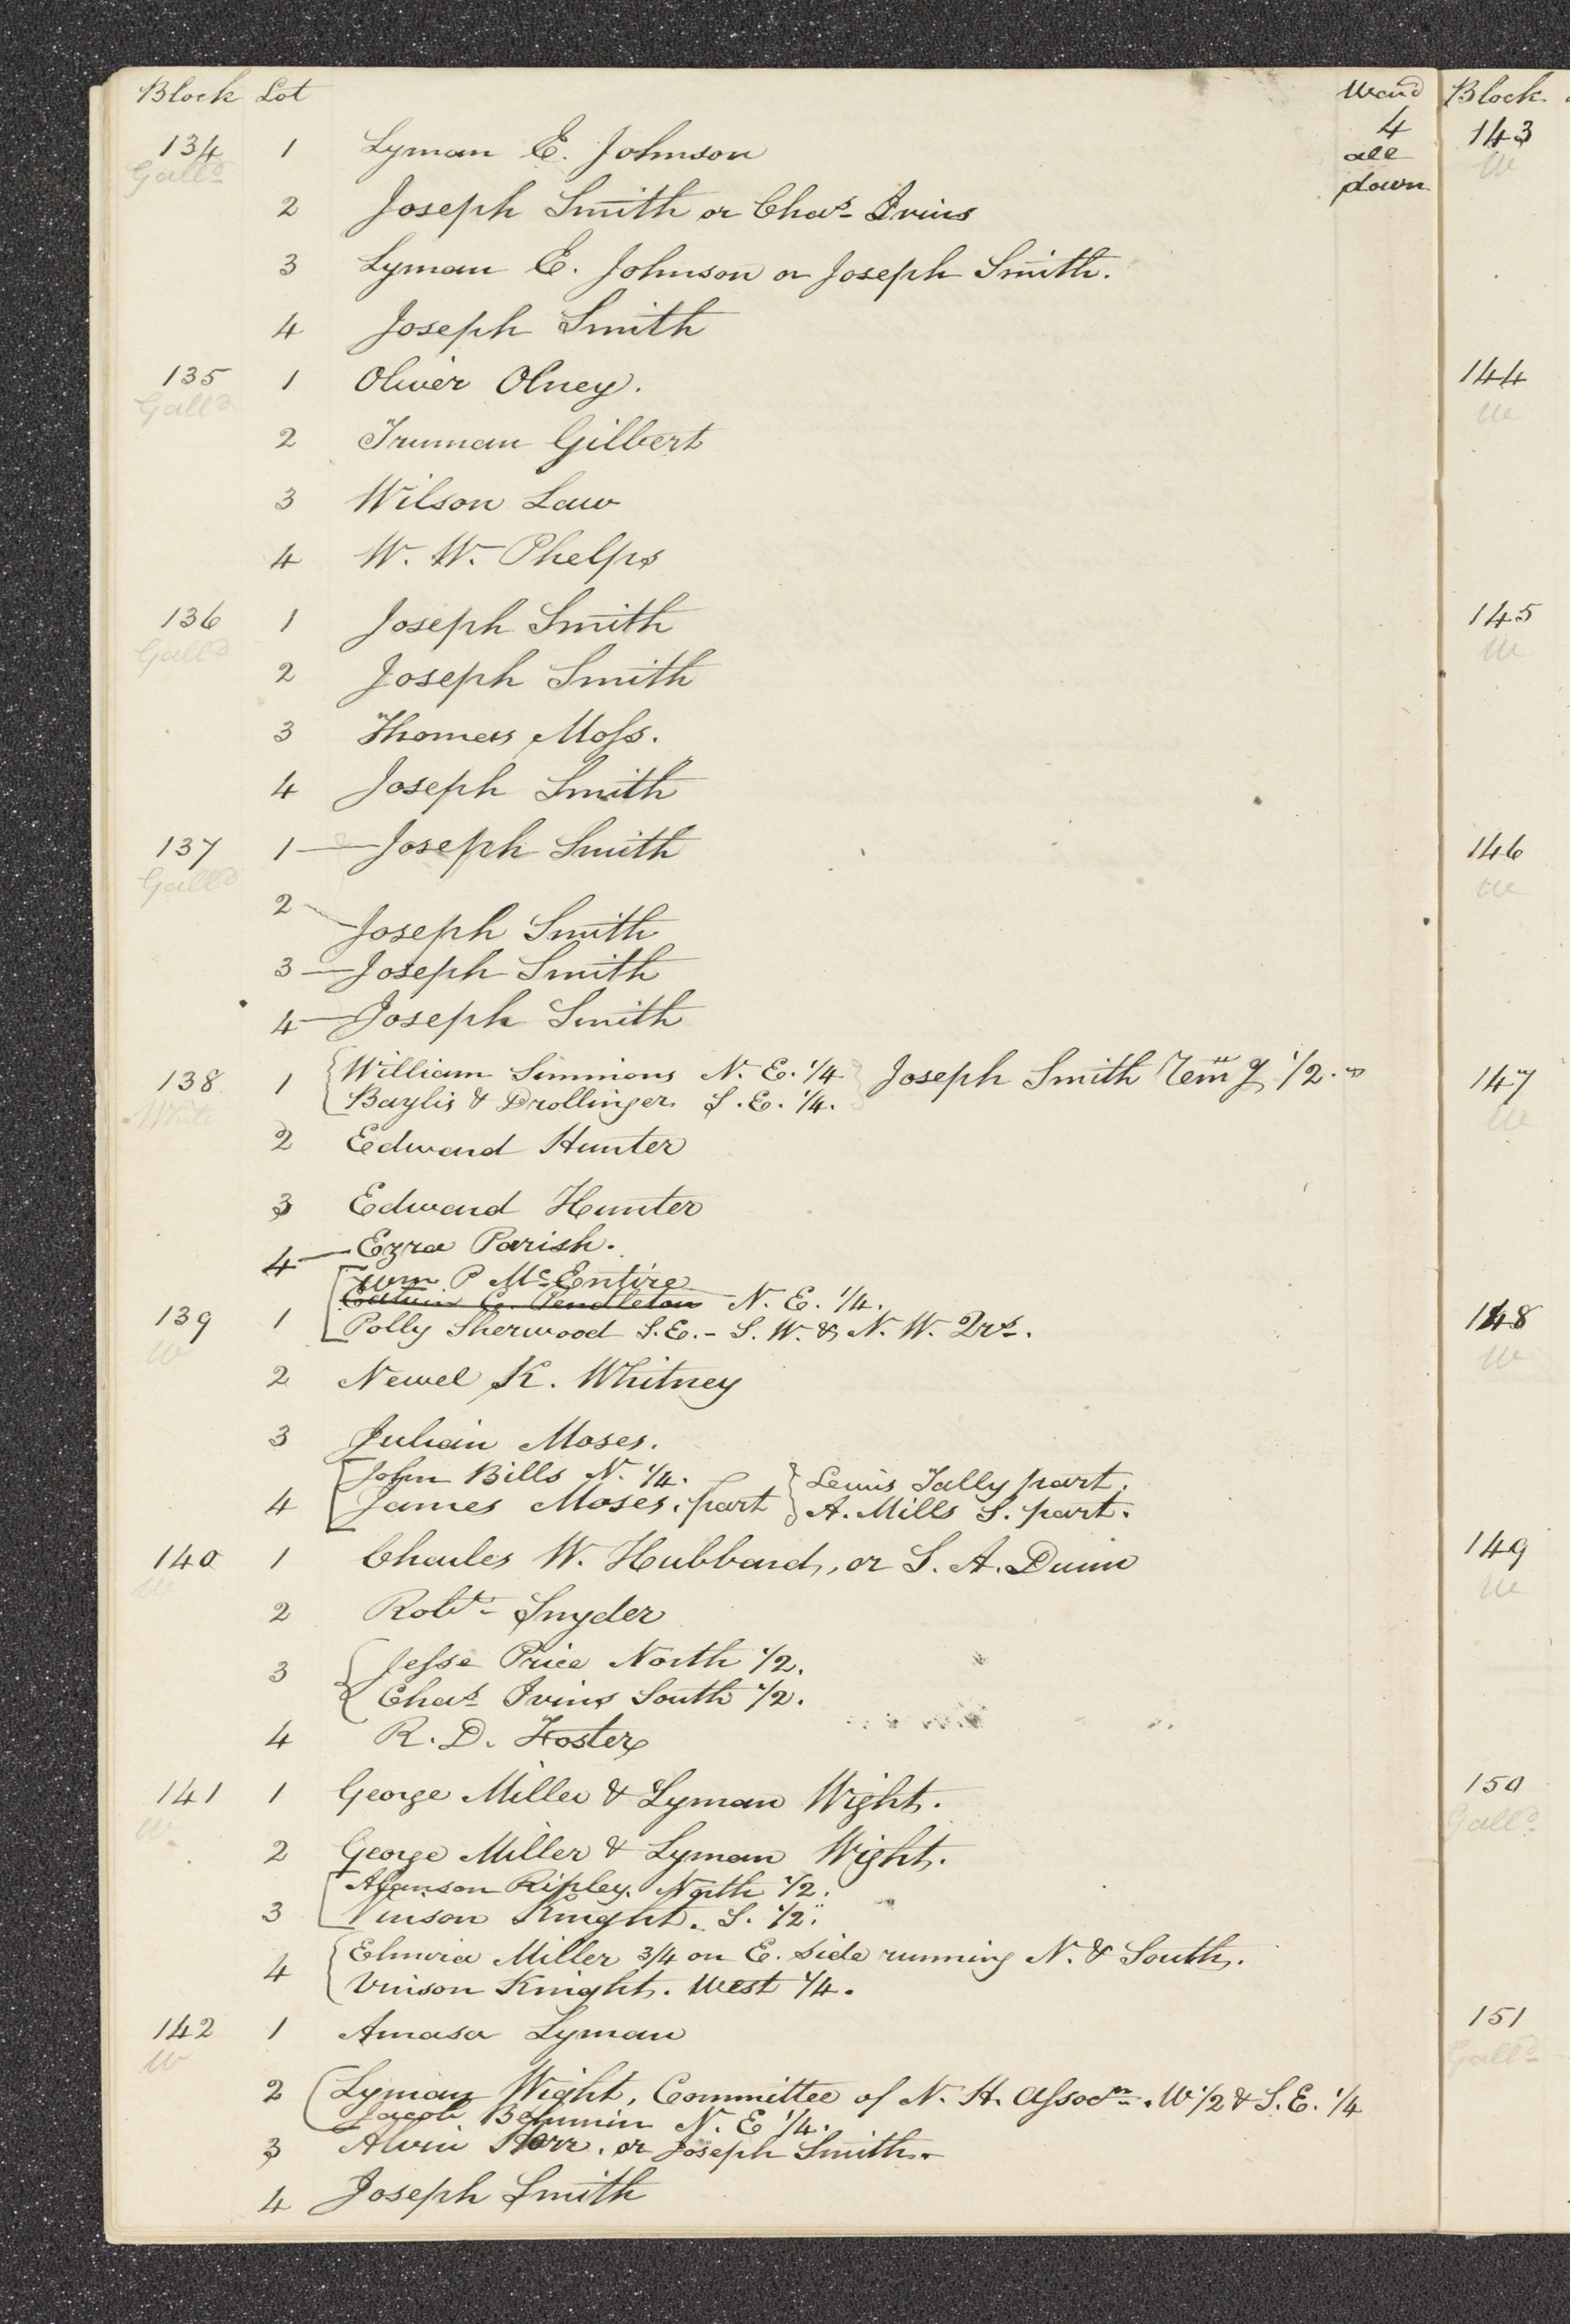 Block Lot Ward
134 1 Lyman E. Johnson 4
Galld all
2 Joseph Smith or Chas. Ivins down
3 Lyman E. Johnson or Joseph Smith.
4 Joseph Smith
135 1 Oliver Olney.
Galld
2 Truman Gilbert
3 Wilson Law
4 W. W. Phelps
136 1 Joseph Smith
Galld
2 Joseph Smith
3 Thomas Moss.
4 Joseph Smith
137 1 — Joseph Smith
Galld
2 — Joseph Smith
3 — Joseph Smith
4 — Joseph Smith
138 1 William Simmions N. E. 1/4 Joseph Smith 1/2.
White Baylis & Drollinger. S. E. 1/4.
2 Eedward Hunter
3 Edward Hunter
4 — Ezra Parish.
Wm P McEntire
139 1 Pendleton N. E. 1/4.
W Polly Sherwood S.E. - S. W. & N. W. Qrs.
2 Newel K. Whitney
3 Julian Moses.
John Bills N. 1/4. Lewis Tally part.
4 James Moses. part A. Mills S. part.
140 1 Charles W. Hubbard, or S. A. Dunn
W
2 Robt. Snyder
3 Jesse Price North 1/2.
Chas Ivins South 1/2.
4 R. D. Foster
141 1 George Miller & Lyman Wight.
W
2 George Miller & Lyman Wight.
Alanson Ripley. North 1/2.
3 Vinson Knight. S. 1/2.
4 Elmira Miller 3/4 on E. side running N. & South.
Vinson Knight. West 1/4.
142 1 Amasa Lyman
W
2 Lyman Wight, Committee of N. H. Assocn. W 1/2 & S. E. 1/4
Jacob N. E 1/4.
3 Alvin or Joseph Smith.
4 Joseph Smith
Block
143
W
144
W
145
W
146
W
147
W
148
W
149
W
150
Galld
151
Galld